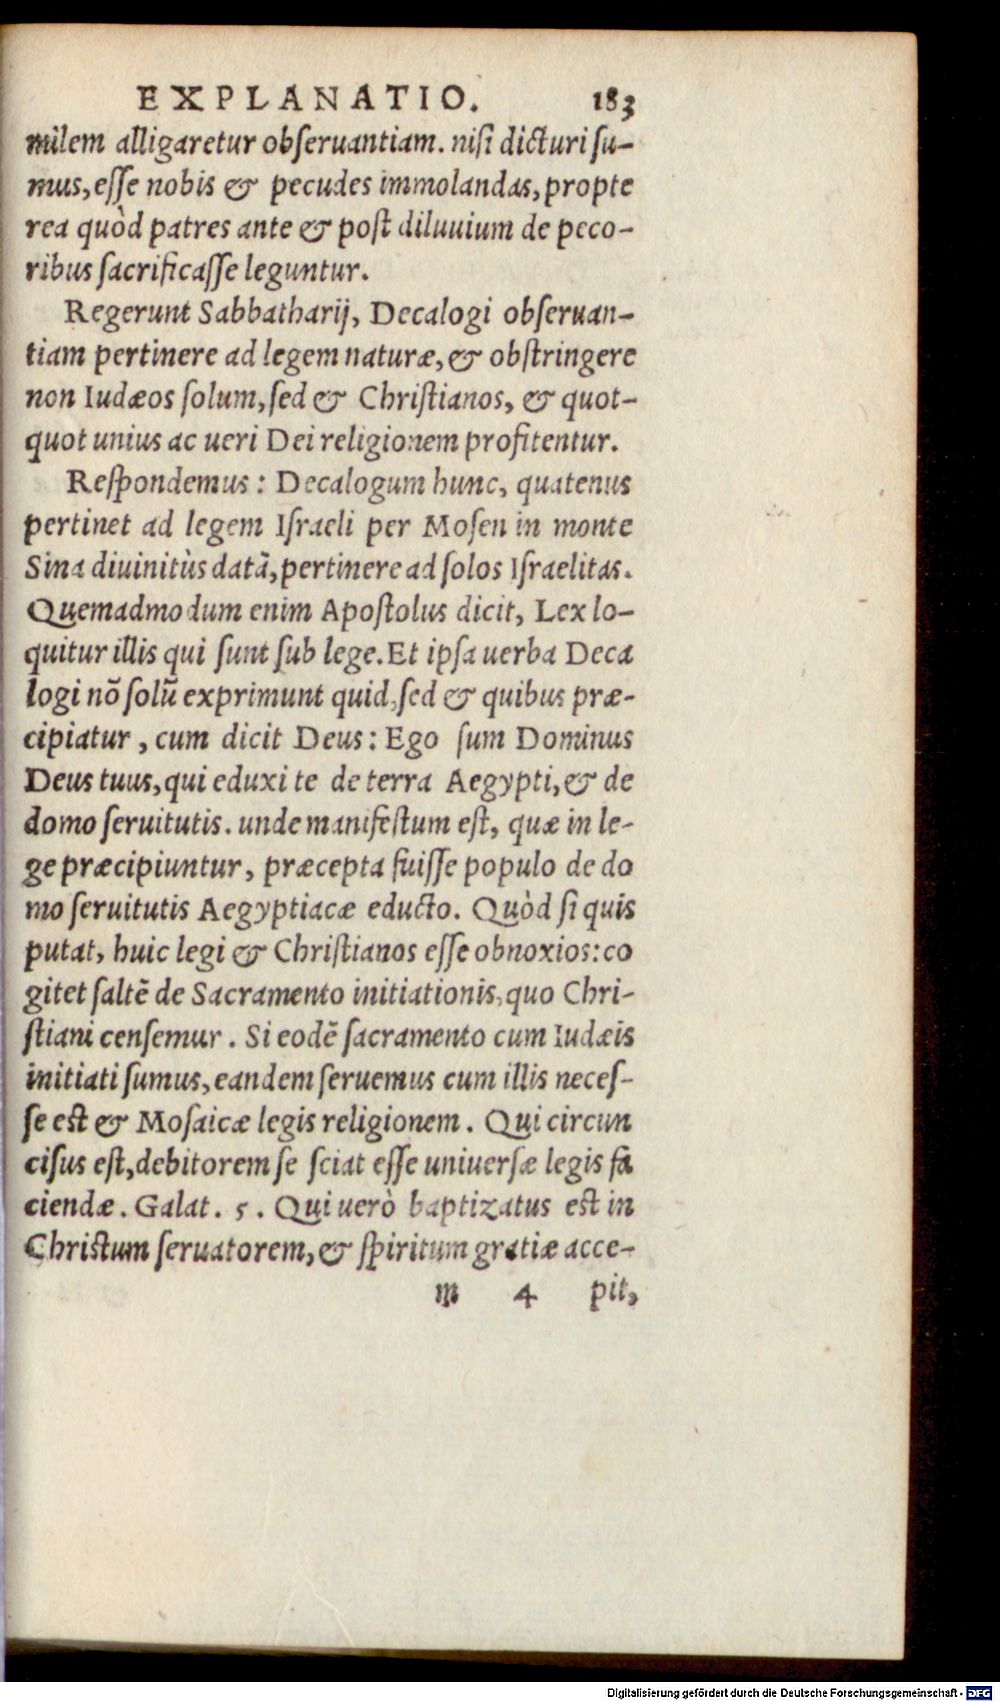 EXPLANATIO. 183
milem alligaretur obſeruantiam. niſi dicturi ſu-
mus, eſſe nobis & pecudes immolandas, propte
rea quòd patres ante & poſt diluuium de peco-
ribus ſacrificaſſe leguntur.
Regerunt Sabbatharij, Decalogi obſeruan-
tiam pertinere ad legem naturæ, & obſtringere
non Iudæos ſolum, ſed & Chriſtianos, & quot-
quot unius ac ueri Dei religionem profitentur.
Reſpondemus: Decalogum hunc, quatenus
pertinet ad legem Iſraeli per Moſen in monte
Sina diuinitùs datã, pertinere ad ſolos Iſraelitas.
Quemadmodum enim Apoſtolus dicit, Lex lo-
quitur illis qui ſunt ſub lege. Et ipſa uerba Deca
logi nõ ſolũ exprimunt quid, ſed & quibus præ-
cipiatur, cum dicit Deus: Ego ſum Dominus
Deus tuus, qui eduxi te de terra Aegypti, & de
domo ſeruitutis. unde manifeſtum eſt, quæ in le-
ge præcipiuntur, præcepta fuiſſe populo de do
mo ſeruitutis Aegyptiacæ educto. Quòd ſi quis
putat, huic legi & Chriſtianos eſſe obnoxios: co
gitet ſaltẽ de Sacramento initiationis, quo Chri-
ſtiani cenſemur. Si eodẽ ſacramento cum Iudæis
initiati ſumus, eandem ſeruemus cum illis neceſ-
ſe eſt & Moſaicæ legis religionem. Qui circun
ciſus eſt, debitorem ſe ſciat eſſe uniuerſæ legis fa
ciendæ. Galat. 5. Qui uerò baptizatus eſt in
Chriſtum ſeruatorem, & ſpiritum gratiæ acce-
m 4 pit,
Digitalisierung gefördert durch die Deutsche Forschungsgemeinschaft - DFG